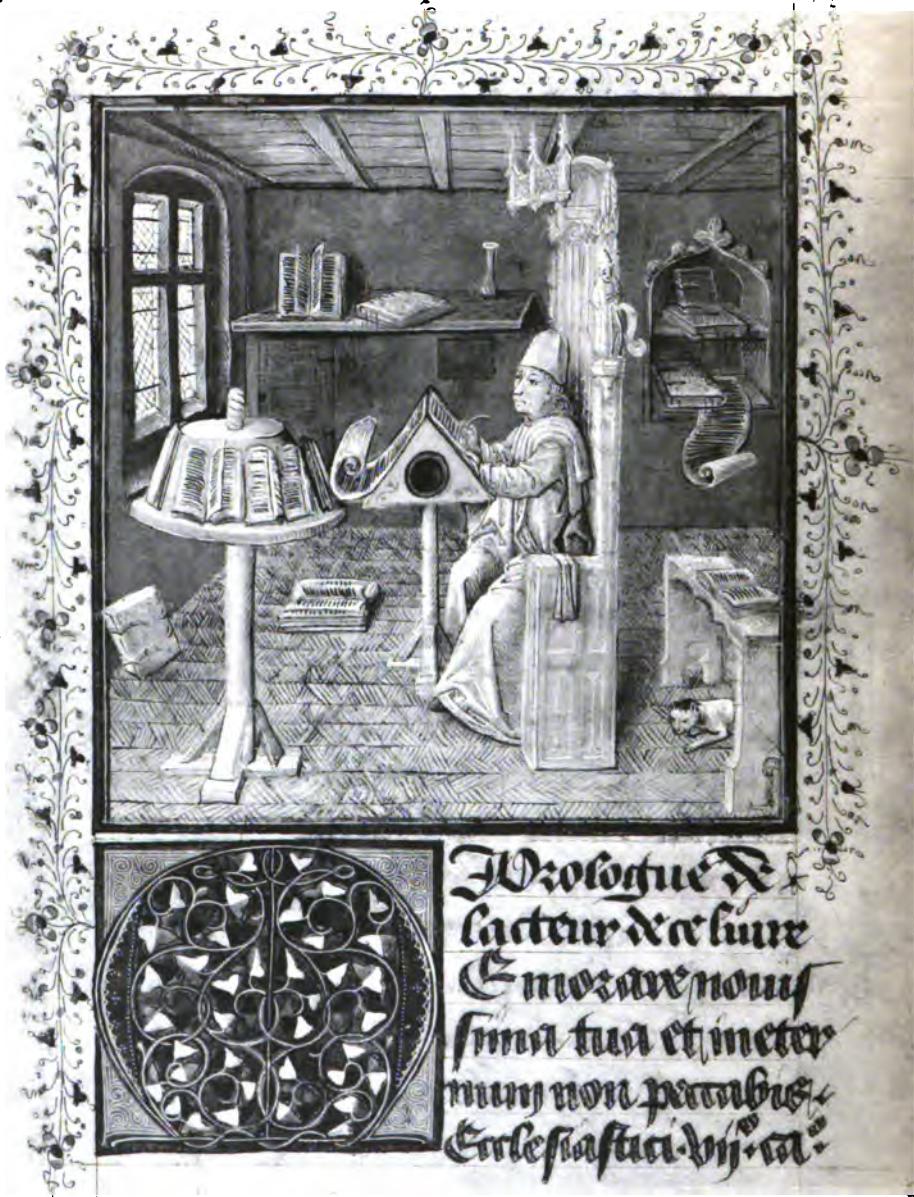 Prologue de
lacteur de ce liure
MEmorare nouis
sima tua et in eter
num non peccabis.
Ecclesiastici. vij. ca°.